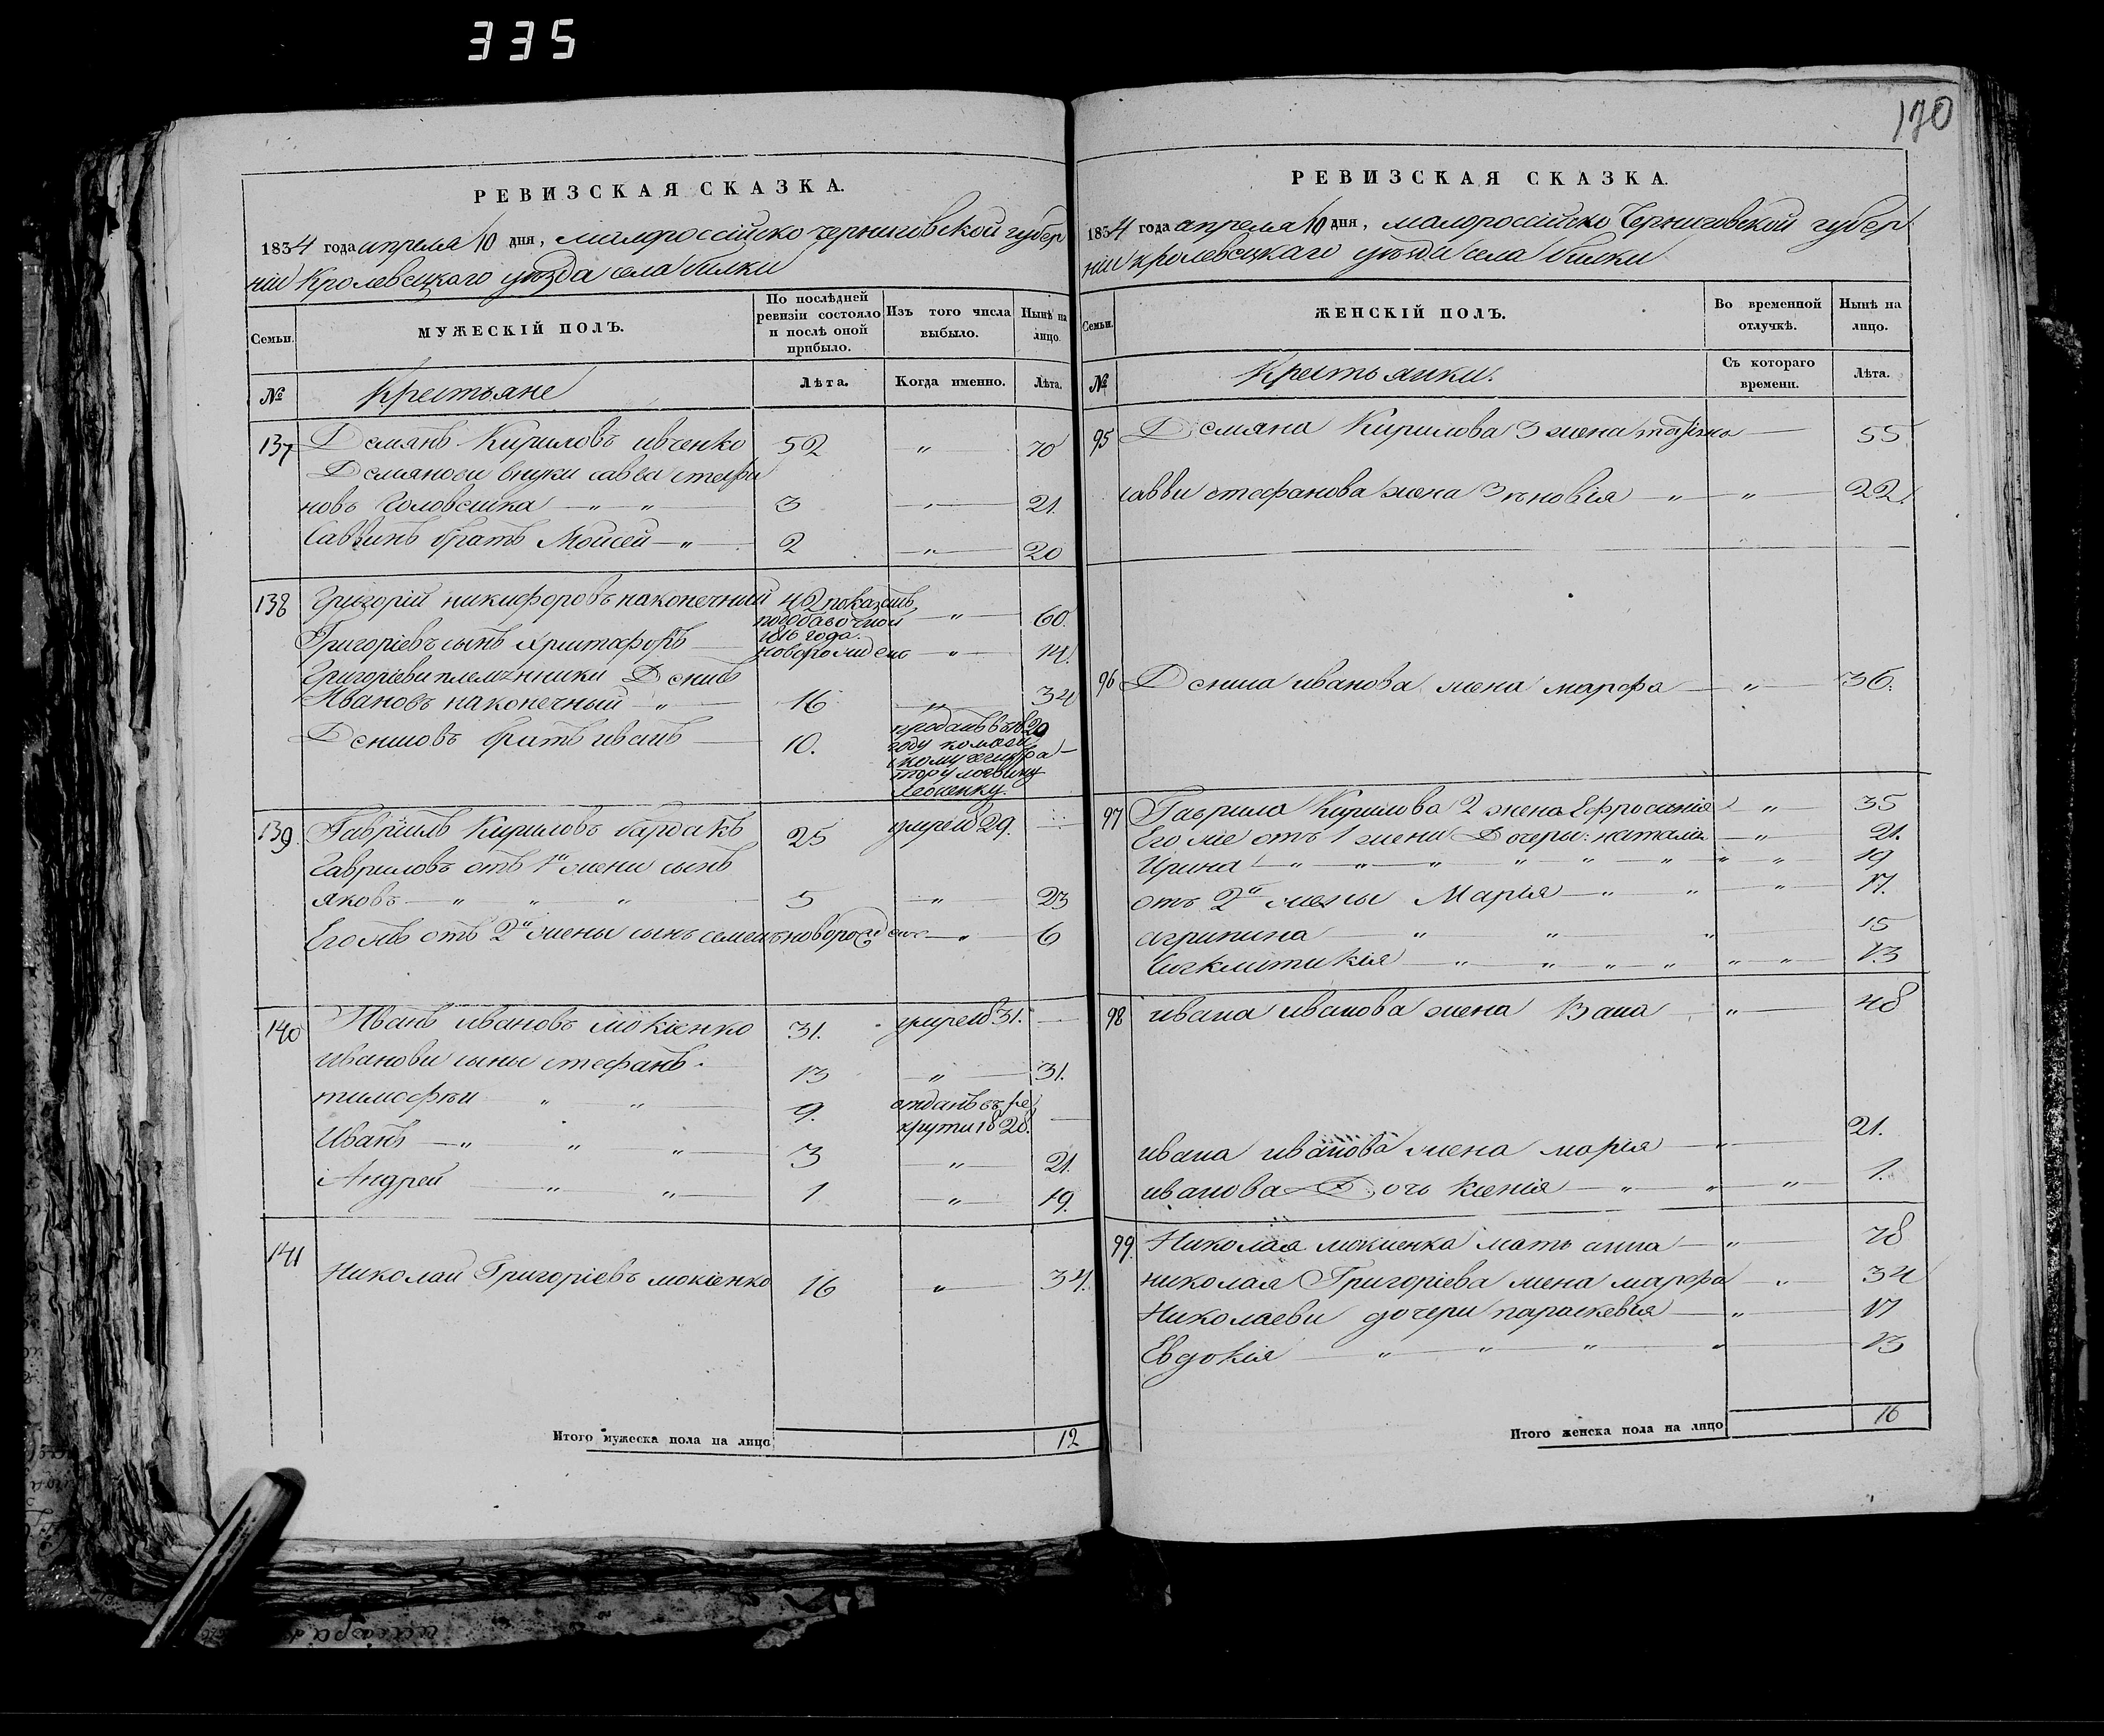 335
РЕВИЗСКАЯ СКАЗКА.
1834 года апреля 10 дня, малороссійско черниговской губер
ніи Кролевецкаго уезда села билки
Семьи.
МУЖЕСКІЙ ПОЛЪ.
По послѣдней ревизіи состояло и послѣ оной прибыло.
Изъ того числа выбыло.
Нынѣ на лицо.
№
Крестьяне
Лѣта.
Когда именно.
Лѣта.
137 Демянъ Кириловъ ивченко 52 " 70
Демянови внуки савва стефа
новъ Головешка " " 3 " 21.
Саввинъ братъ Мойсей " 2 " 20
138 Григорій никифоровъ наконечный 42 показанъ
подобавочной
1816 года. " 60.
Григоріевъ сынъ Христофоръ новорожденъ " 14.
Григоріеви племянники Денисъ
Ивановъ наконечный " 16 " 34
Денисовъ братъ иванъ 10. проданъ въ 1829
году
139. Гавріилъ Кириловъ 25 умре в 29.
Гавриловъ отъ 1й жени сынъ
яковъ " " " 5 " 23
Его жъ отъ 2й жены сынъ семенъ новорожденъ " 6
140 Иванъ ивановъ мокіенко 31. умре в 31.
Иванови сыны стефанъ 13 " 31.
тимофѣи " " 9. отданъ въ ре
крути 1828.
Иванъ " " " 3 " 21.
Андрей " " 1 " 19.
141 Николай Григоріевъ мокіенко 16 " 34.
Итого мужеска пола на лицо 12
170
РЕВИЗСКАЯ СКАЗКА.
1834 года апреля 10 дня, малоросійско Черниговской губер
ніи кролевецкаго уезда села билки
Семьи.
ЖЕНСКІЙ ПОЛЪ.
Во временной отлучкѣ.
Нынѣ на лицо.
№
Крестьянки.
Съ котораго времени.
Лѣта.
95 Демяна Кирилова 3 жена 55
савви стефанова жена Зѣновія " " 22.
96 Дениса иванова жена марфа " 36.
97 Гаврила Кирилова 2 жена Ефросинія " 35
Его же отъ 1 жени Дочери: наталія " 21.
Ирина " " " " " " " " 19
отъ 2й жены Марія " " " 17.
агрипина " " " 15
" " " " " " 13
98 ивана иванова жена " 48
ивана иванова жена марія " 21.
иванова Дочь ксенія " " " 1.
99. Николая мокиенка мать анна " 78
николая Григоріева жена марфа " 34
Николаеви дочери параскевія " 17
Евдокія " " " " 13
Итого женска пола на лицо 16